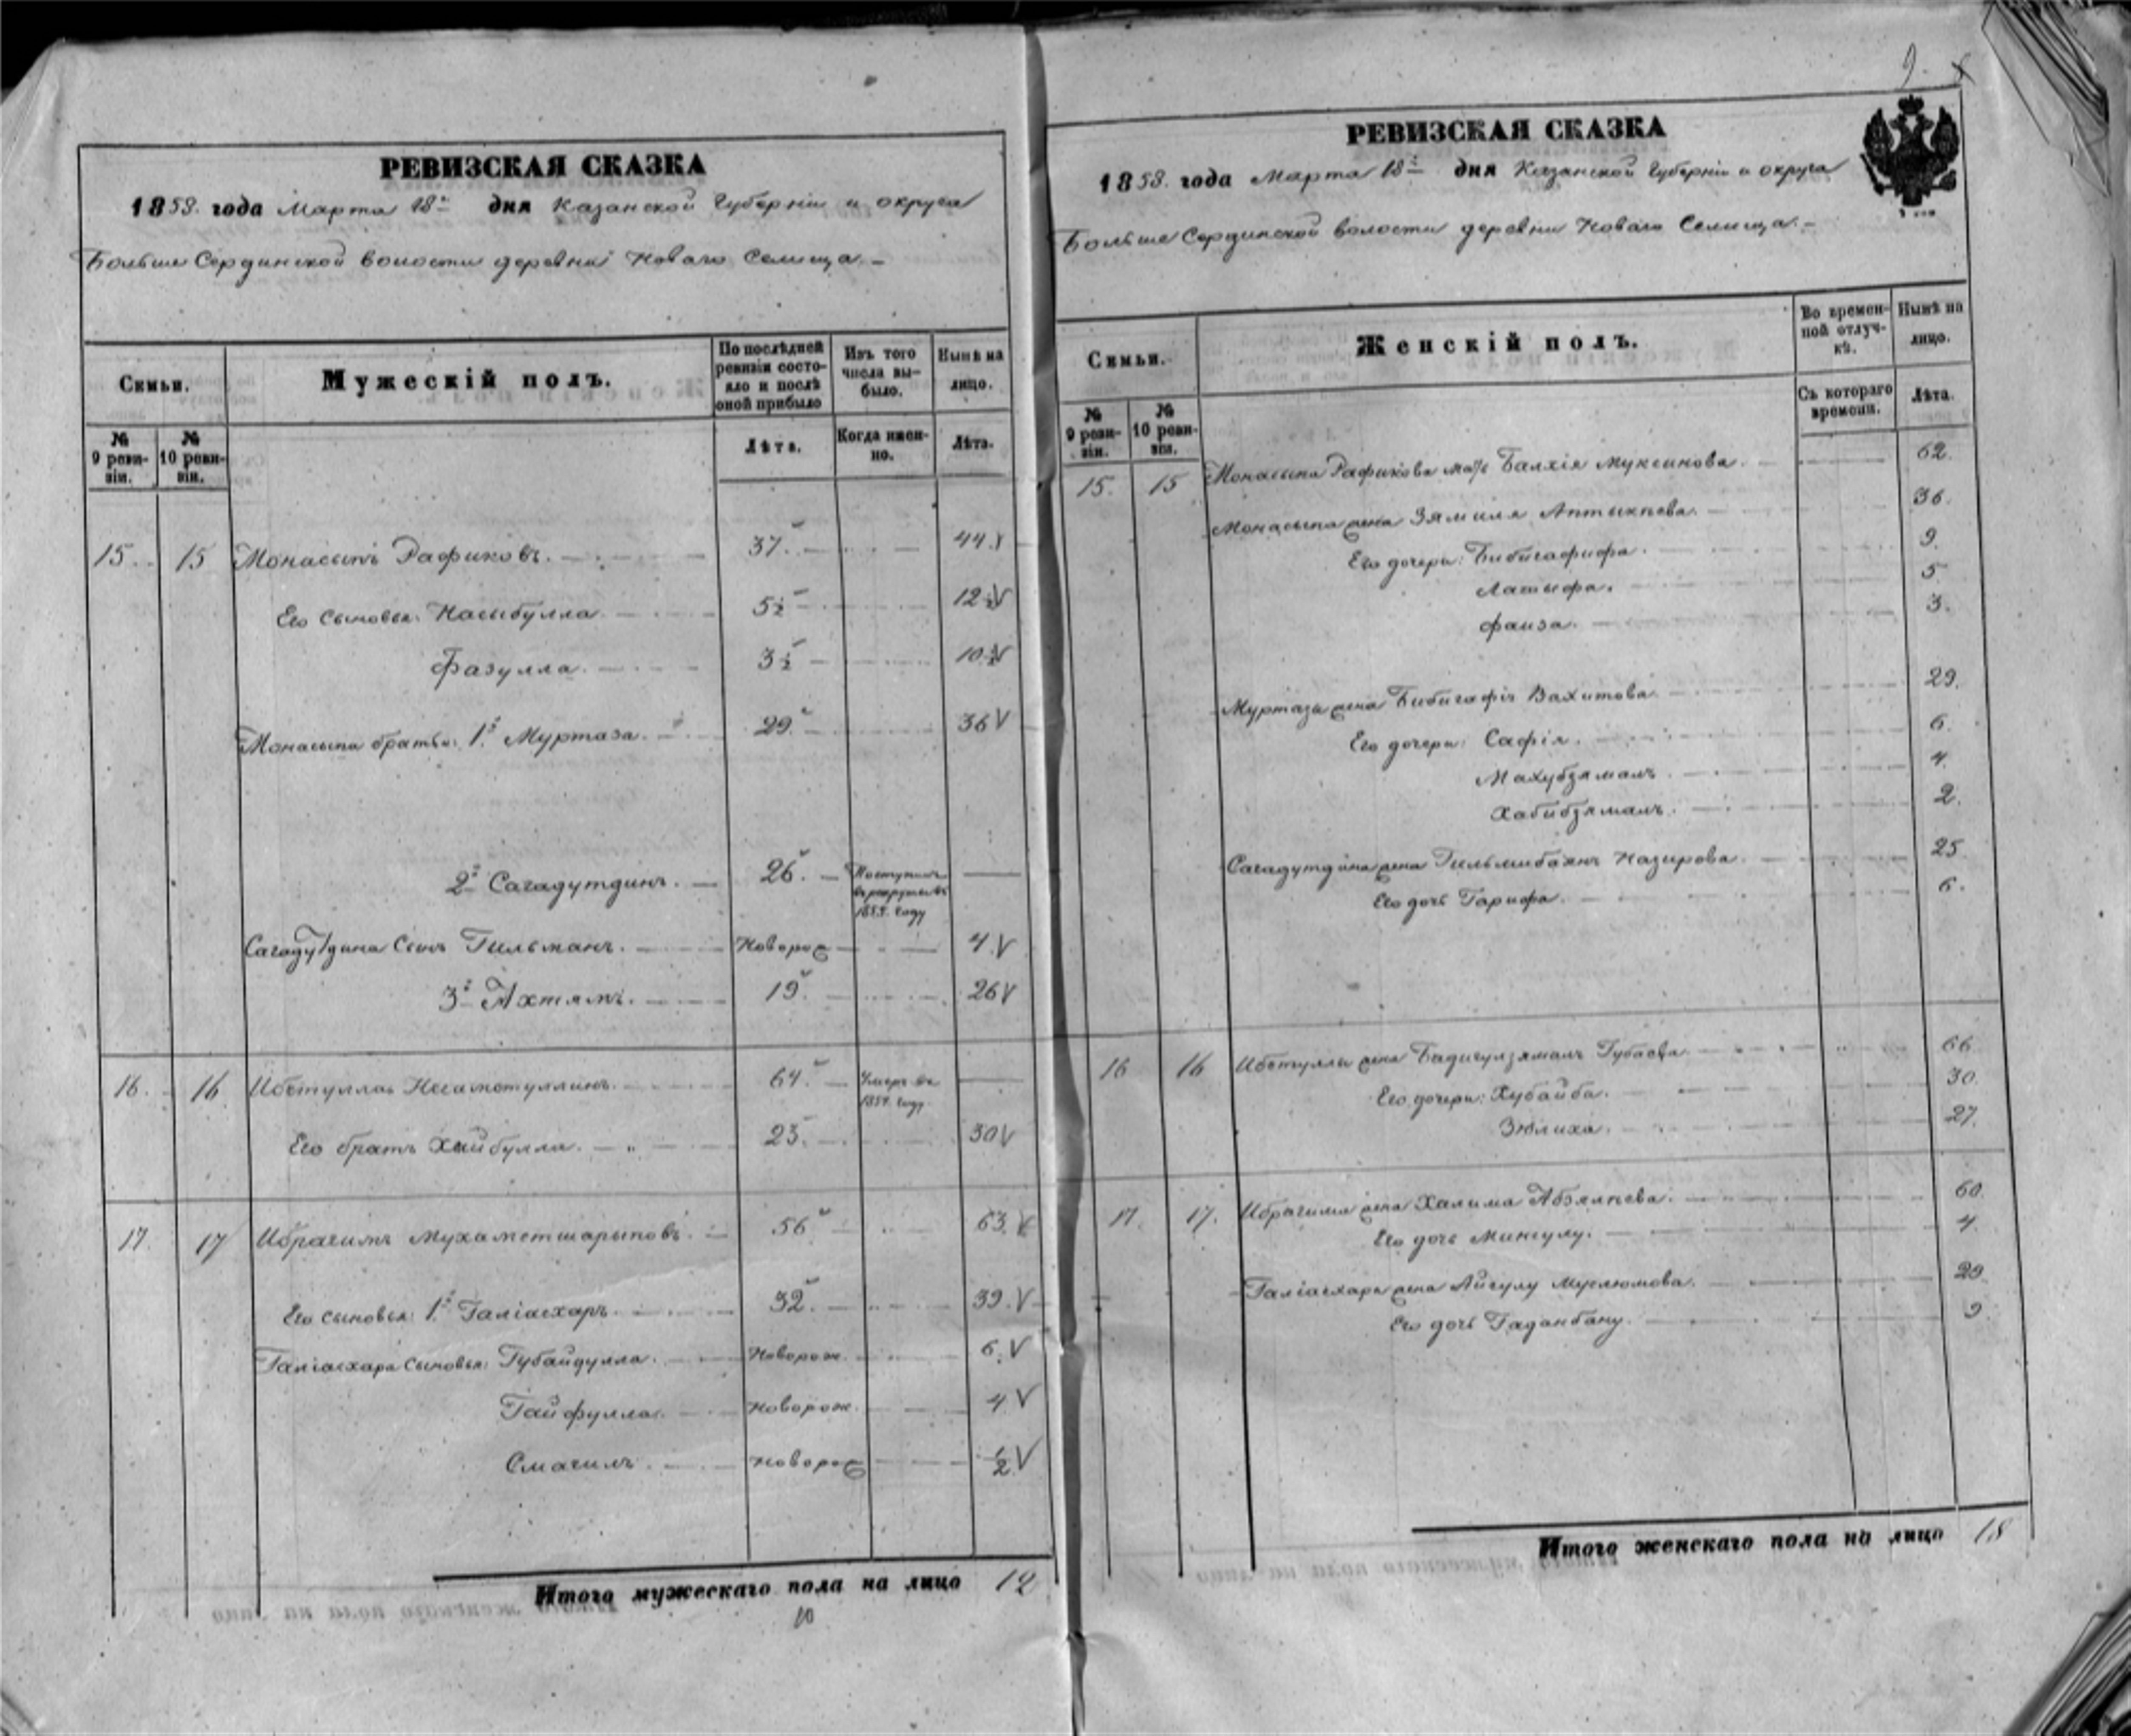 РЕВИЗСКАЯ СКАЗКА
1858. года Марта 18го дня Казанской Губерніи и округа
Больше Сердинской волости деревни Новаго Селища. –
Семьи.
Мужескій полъ.
По послѣдней ревизіи состояло и послѣ оной прибыло
Изъ того числа выбыло.
Нынѣ на лицо.
№ 9 ревизіи.
№ 10 ревизіи.
Лѣта.
Когда именно.
Лѣта.
15. 15 Монасыпъ Рафиковъ. 37. 44.
Его сыновья: Насыбулла 5½ 12½
Фазулла. 3½ 10½
Монасыпа братья: 1й Муртаза. 29. 36
2й Сагадутдинъ. 26. Поступилъ в рекруты въ 1854. году
Сагадутдина сынъ Гильманъ. Новорож 4.
3й Ахтямъ. 19. 26
16. 16 Ибетулла Негаметуллинъ. 64. Умеръ въ 1854. году
Его братъ Хайбулла. 23. 30
17. 17 Ибрагимъ Мухаметшарыповъ. 56. 63.
Его сыновья: 1й Галіасхаръ. 32. 39.
Галіасхара сыновья: Губайдулла. Новорож. 6.
Гайфулла. Новорож. 4
Смагилъ. Новорож ½
Итого мужескаго пола на лицо 12
10
9.
РЕВИЗСКАЯ СКАЗКА
1858. года Марта 18го дня Казанской Губерніи и округа
Больше Сердинской волости деревни Новаго Селища. –
Семьи.
Женскій полъ.
Во временной отлучкѣ.
Нынѣ на лицо.
№ 9 ревизіи.
№ 10 ревизіи.
Съ котораго времени.
Лѣта.
15. 15 Монасыпа Рафикова мать Балхія Муксинова. 62.
Монасыпа жена Зямиля Аптыкѣева. 36.
Его дочери: Бибигафифа. 9.
Латыфа. 5
Фаиза. 3.
Муртазы жена Бибигафія Вахитова 29.
Его дочери: Сафія. 6.
Махубзямалъ. 4.
Хабибзямалъ. 2.
Сагадутдина жена Гильмибаянъ Назирова. 25
Его дочь Гарифа. 6.
16 16 Ибетуллы жена Бадигулзямалъ Губаева. 66.
Его дочери: Хубайба. 30.
Зюлиха. 27.
17. 17. Ибрагима жена Халима Абзялѣева. 60.
Его дочь Мингулу. 4.
Галіасхара жена Айгулу Муслюмова. 29.
Его дочь Гаданбану. 9
Итого женскаго пола на лицо 18